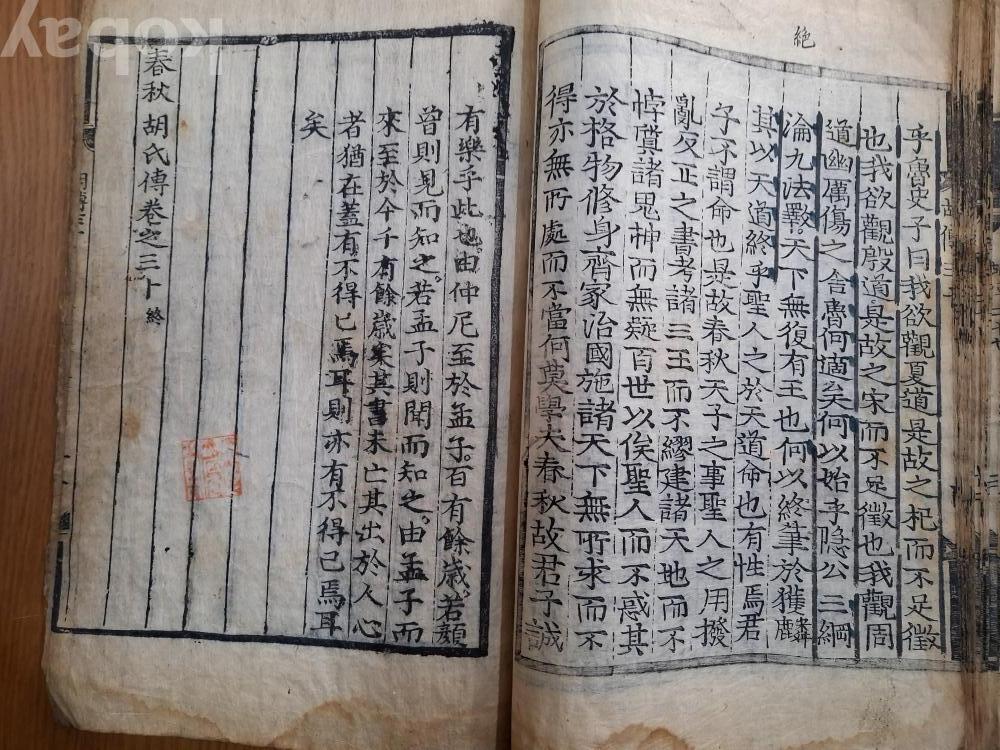 絶
乎魯史子曰我欲觀夏道是故之杞而不足徵
也我欲觀殷道是故之宋而不足徵也我觀周
道幽厲傷之舍魯何適矣何以始乎隱公三綱
淪九法斁天下無復有王也何以終筆於獲麟
其以天道終乎聖人之於天道命也有性焉君
子不謂命也是故春秋天子之事聖人之用撥
亂反正之書考諸三王而不繆建諸天地而不
悖質諸鬼神而無疑百世以俟聖人而不惑其
於格物修身齊家治國施諸天下無所求而不
得亦無所處而不當何莫學夫春秋故君子誠
有樂乎此也由仲尼至於孟子百有餘歲若顔
曾則見而知之若孟子則聞而知之由孟子而
來至於今千有餘歲矣其書未亡其出於人心
者猶在蓋有不得已焉耳則亦有不得已焉耳
矣
春秋胡氏傳卷之三十 終
kobay